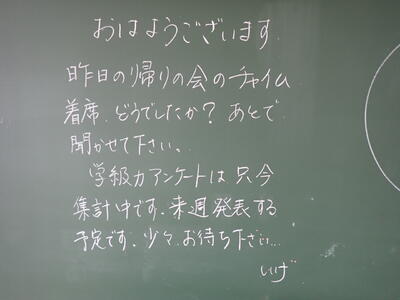 おはようございます.
昨日の帰りの会のチャイム
着席、どうでしたか？あとで
聞かせて下さい。
学級力アンケートは只今
集計中です。来週発表する
予定です。少々お待ち下さい…
いげ